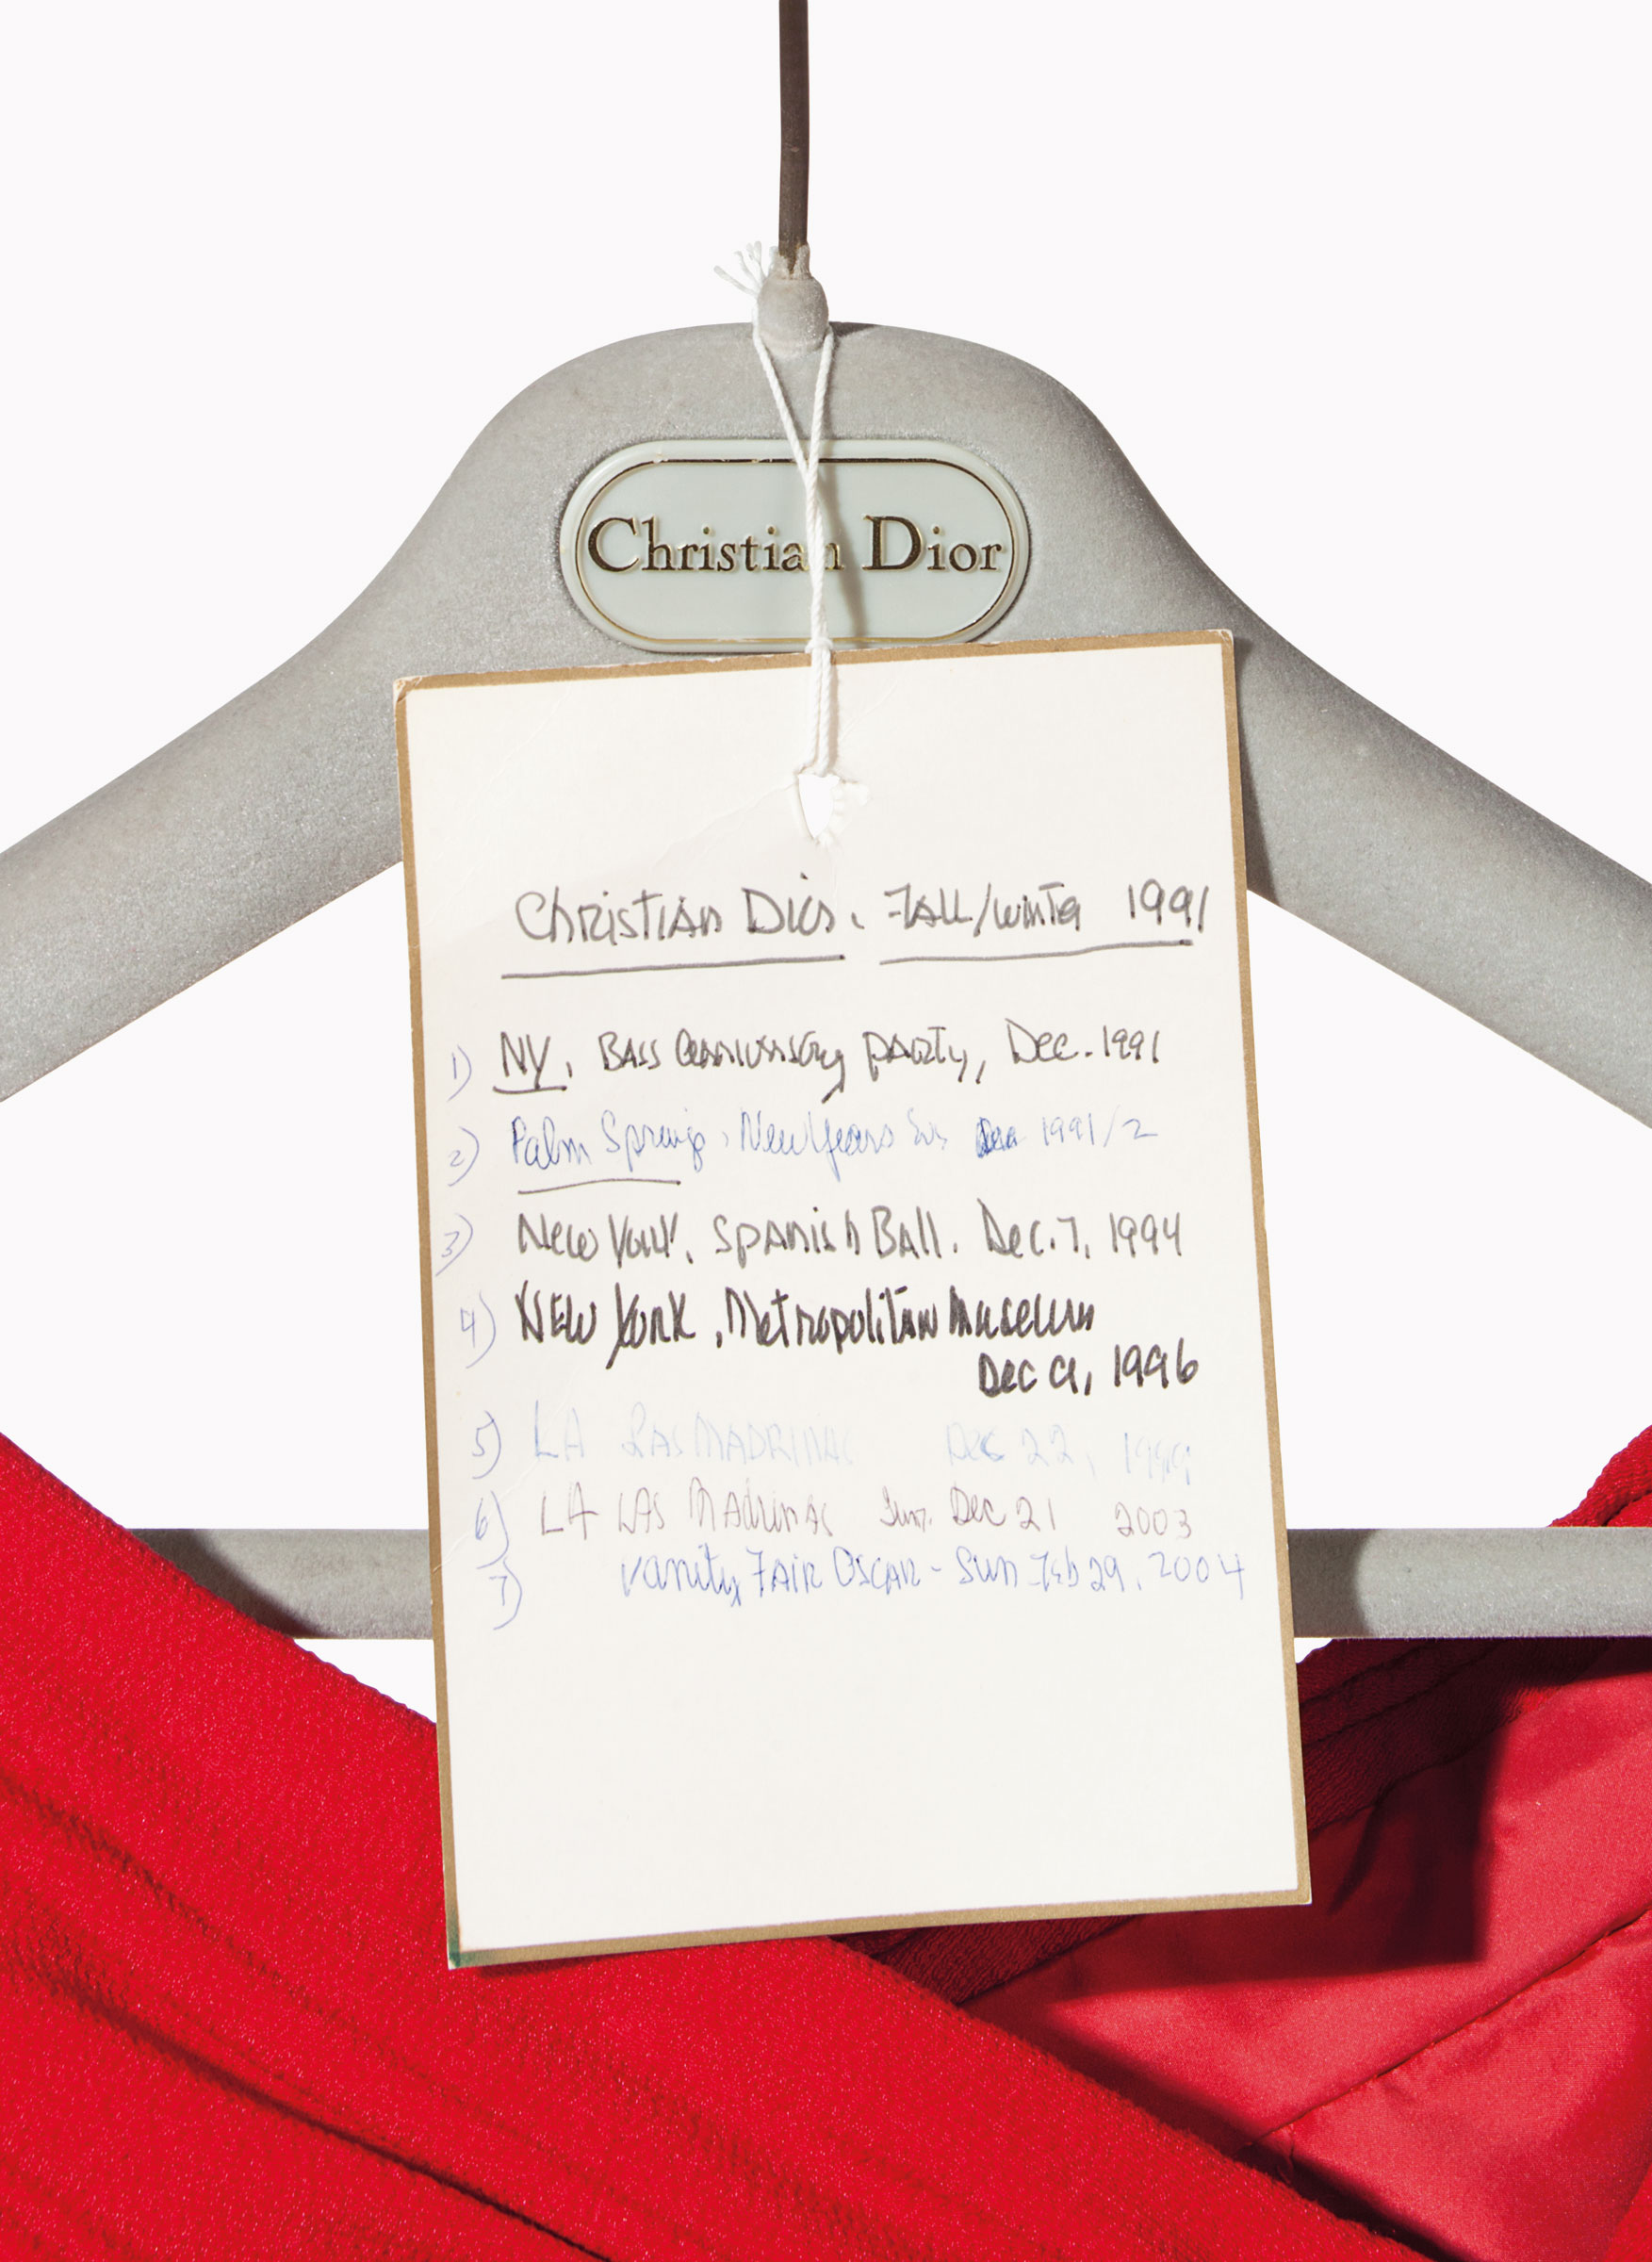 Christian Dior
Christian Dior. Fall/Winter 1991
1) NY, Bass Anniversary party, Dec. 1991
2) Palm Springs, New Years Eve Dec 1991/2
3) New York. Spanish Ball. Dec. 7, 1994
4) New York, Metropolitan Museum
Dec 9, 1996
5) LA Las Madrinas Dec 22, 1999
6) LA Las Madrinas Sun. Dec 21 2003
7) Vanity Fair Oscar - Sun Feb 29, 2004